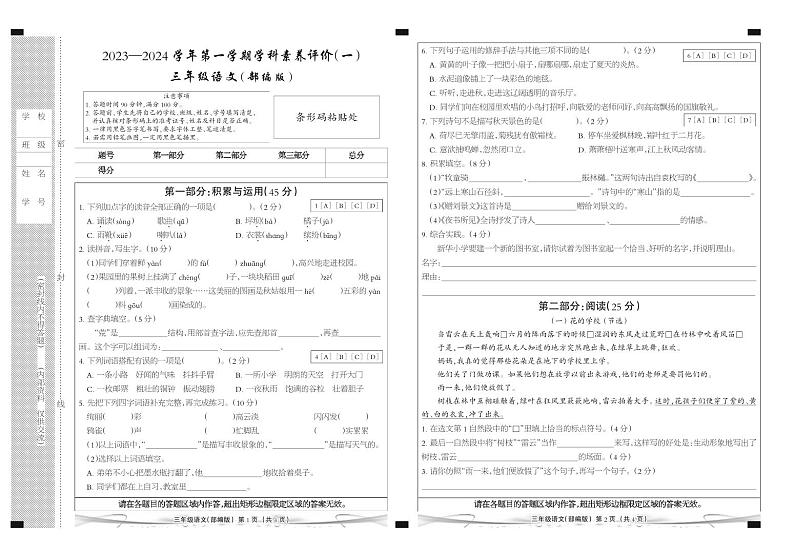 学 校
班 级
姓 名
学 号
密
封
线
（密封线内不得答题）
（内部资料 仅供交流）
2023—2024 学年第一学期学科素养评价（一）
三年级语文（部编版）
注意事项
1. 答题时间 90 分钟，满分 100 分。
2. 答题前，学生先将自己的学校、班级、姓名、学号填写清楚，
并认真核对条形码上的准考证号、姓名及科目是否正确。
3. 一律用黑色签字笔书写，要求字体工整、笔迹清楚。
4. 若需用铅笔画图，一定用黑色笔描黑。
条形码粘贴处
题号 第一部分 第二部分 第三部分 总分
得分
第一部分：积累与运用（45 分）
1. 下列加点字的读音全部正确的一项是( )。（2 分） 1 [A] [B] [C] [D]
A. 诵读(sòng) 歌曲(qū) B. 坪坝(bà) 橘子(jú)
C. 雨靴(xuē) 喇叭(lǎ) D. 衣裳(shang) 缤纷(bīng)
2. 读拼音，写生字。（10 分）
（1）同学们穿着鲜 yàn( )的 fú( ) zhuāng( )，高兴地走进校园。
（2）果园里的果树上挂满了 chéng( )子，一块块稻田 guǐ( ) zé( )地 pái
( )列着，一派丰收的景象……这美丽的图画是秋姑娘用一 hé( )五彩的 yán
( )料 gōu( )画染成的。
3. 查字典填空。（5 分）
“荒”是 结构，用部首查字法，应先查部首 ，再查
画。这个字可以组词为： 、 。
4. 下列词语搭配有误的一项是( )。（2 分） 4 [A] [B] [C] [D]
A. 一条小路 好闻的气味 抖抖手臂 B. 一所小学 明朗的天空 打开大门
C. 一枚邮票 粗壮的铜钟 振动翅膀 D. 一夜秋雨 饱满的谷粒 壮着胆子
5. 先把下列四字词语补充完整，再完成练习。（10 分）
绚丽( )彩 ( )高云淡 闪闪发( )
鸦雀( )声 ( )忙脚乱 ( )实累累
（1）以上词语中，“ ”是描写丰收景象的，“ ”是描写天气的。
（2）选择以上词语填空。
A. 弟弟不小心把墨水瓶打翻了，他 地收拾着桌子。
B. 同学们都在上自习，教室里 。
请在各题目的答题区域内作答，超出矩形边框限定区域的答案无效。
三年级语文（部编版）第 1 页（共 4 页）
6. 下列句子运用的修辞手法与其他三项不同的是( )。（2 分） 6 [A] [B] [C] [D]
A. 黄黄的叶子像一把把小扇子，扇哪扇哪，扇走了夏天的炎热。
B. 水泥道像铺上了一块彩色的地毯。
C. 听听，走进秋，走进这辽阔透明的音乐厅。
D. 同学们向在校园里欢唱的小鸟打招呼，向敬爱的老师问好，向高高飘扬的国旗敬礼。
7. 下列诗句不是描写秋天景色的一项是( )。（2 分） 7 [A] [B] [C] [D]
A. 荷尽已无擎雨盖，菊残犹有傲霜枝。 B. 停车坐爱枫林晚，霜叶红于二月花。
C. 意欲捕鸣蝉，忽然闭口立。 D. 萧萧梧叶送寒声，江上秋风动客情。
8. 积累填空。（8 分）
（1）“牧童骑 ， 振林樾。”这两句诗出自袁枚写的《 》。
（2）“远上寒山石径斜， 。”诗句中的“寒山”指的是 。
（3）《赠刘景文》这首诗是 赠给刘景文的。
（4）《夜书所见》全诗抒发了诗人 、 的情感。
9. 综合实践。（4 分）
新华小学要建一个新的图书室，请你试着为图书室起一个恰当、好听的名字，并说明理由。
名字：
理由：
第二部分：阅读（25 分）
（一）花的学校（节选）
当雷云在天上轰响□六月的阵雨落下的时候□湿润的东风走过荒野□在竹林中吹着风笛□
于是，一群一群的花从无人知道的地方突然跑出来，在绿草上跳舞、狂欢。
妈妈，我真的觉得那些花朵是在地下的学校里上学。
他们关了门做功课。如果他们想在放学以前出来游戏，他们的老师是要罚他们的。
雨一来，他们便放假了。
树枝在林中互相碰触着，绿叶在狂风里簌簌地响，雷云拍着大手。这时，花孩子们便穿了紫的、黄
的、白的衣裳，冲了出来。
1. 在选文第 1 自然段中的“□”里填上恰当的标点符号。（4 分）
2. 最后一自然段中将“树枝”“雷云”当作 来写，这样写的好处是：生动形象地写出了
树枝、雷云 的场面。（4 分）
3. 请你仿照“雨一来，他们便放假了”这个句子，再写一个句子。（2 分）
请在各题目的答题区域内作答，超出矩形边框限定区域的答案无效。
三年级语文（部编版）第 2 页（共 4 页）